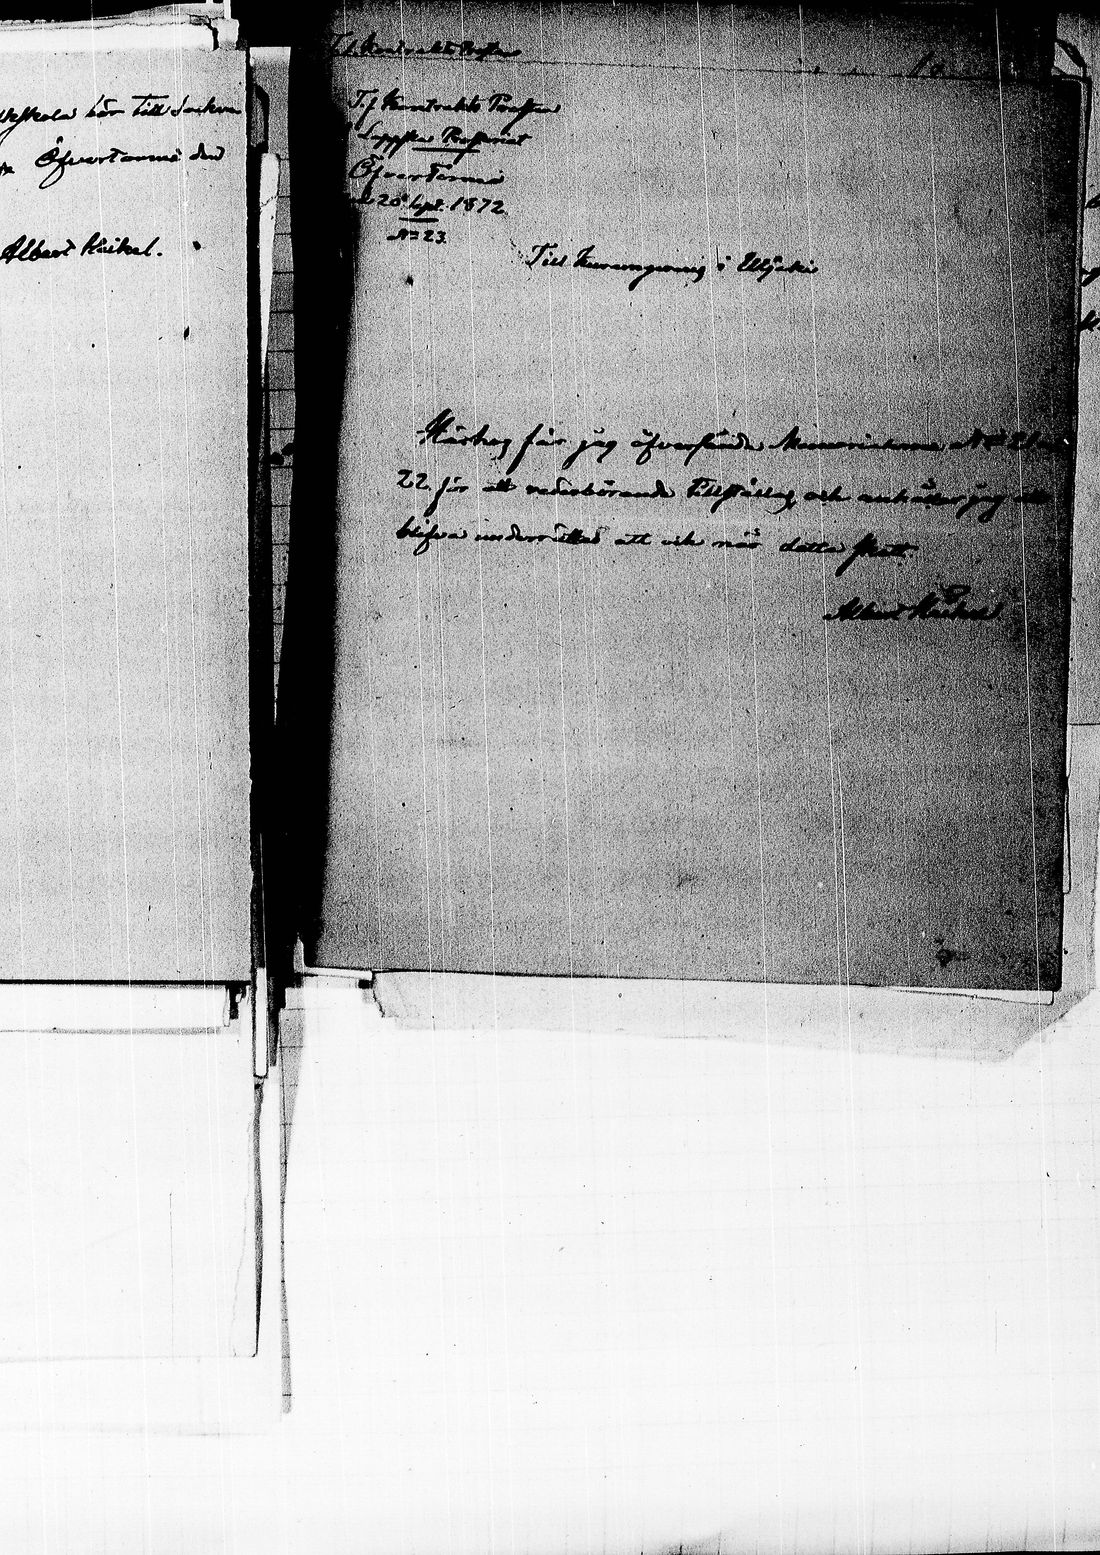 folkskola bör till sockne
Öfvertorneå den
Albert Heikel.
T.f. Kontrakts Prosten
T.f Kontrakts Prosten
i Lappska Prosteriet
Öfvertorneå
d. 20 Sept. 1872
No 23.
Till Kuratorn i Utsjoki
Härhos får jag öfversända Memorialerna No 21 o
22 för att vederbörande tillställas, och anhåller jag att
blifva underrättad att och när detta skett.
Albert Heikel